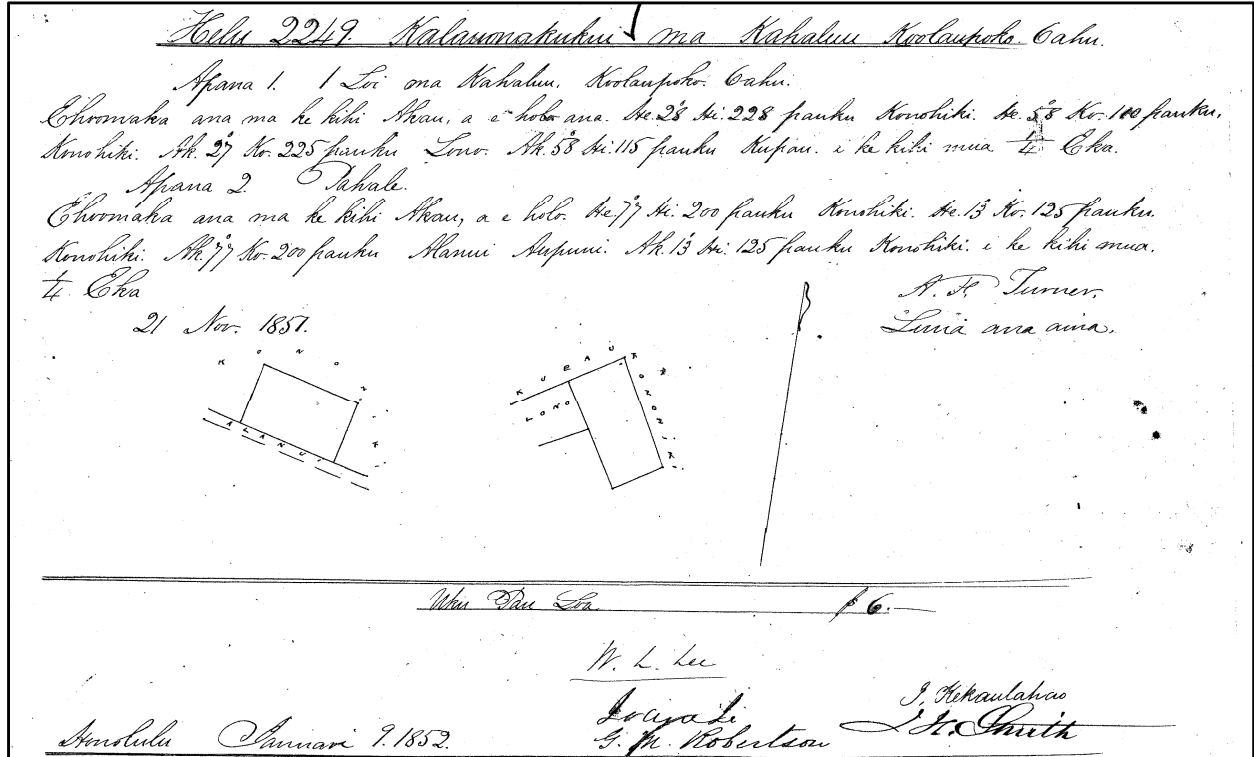 Helu 2249. Kalauonakukui ma Kahaluu Koolaupoko. Oahu.
Apana 1. 1 Loi ma Kahaluu, Koolaupoko. Oahu.
Ehoomaka ana ma ke kihi Akau, a e holo ana. He. 28° Hi. 228 pauku Konohiki. He. 58° Ko. 100 pauku.
Konohiki. Ak. 27° Ko. 225 pauku Lono. Ak. 58° Hi. 115 pauku Kupau. i ke kihi mua 1/4 Eka.
Apana 2. Pahale.
Ehoomaka ana ma ke kihi Akau, a e holo. He. 77° Hi. 200 pauku Konohiki. He. 13° Ko. 125 pauku.
Konohiki. Ak. 77° Ko. 200 pauku Alanui Aupuni. Ak. 13° Hi. 125 pauku Konohiki. i ke kihi mua.
1/4 Eka
A. F. Turner,
21 Nov. 1851.
Luna ana aina.
KONOHIKI
ALANUI
KUPAU
LONO
KONOHIKI
Uku Pau Loa. $6.—
W. L. Lee
Ioane Ii
J. Kekaulahao
G. M. Robertson
J. H. Smith
Honolulu Ianuari 9. 1852.